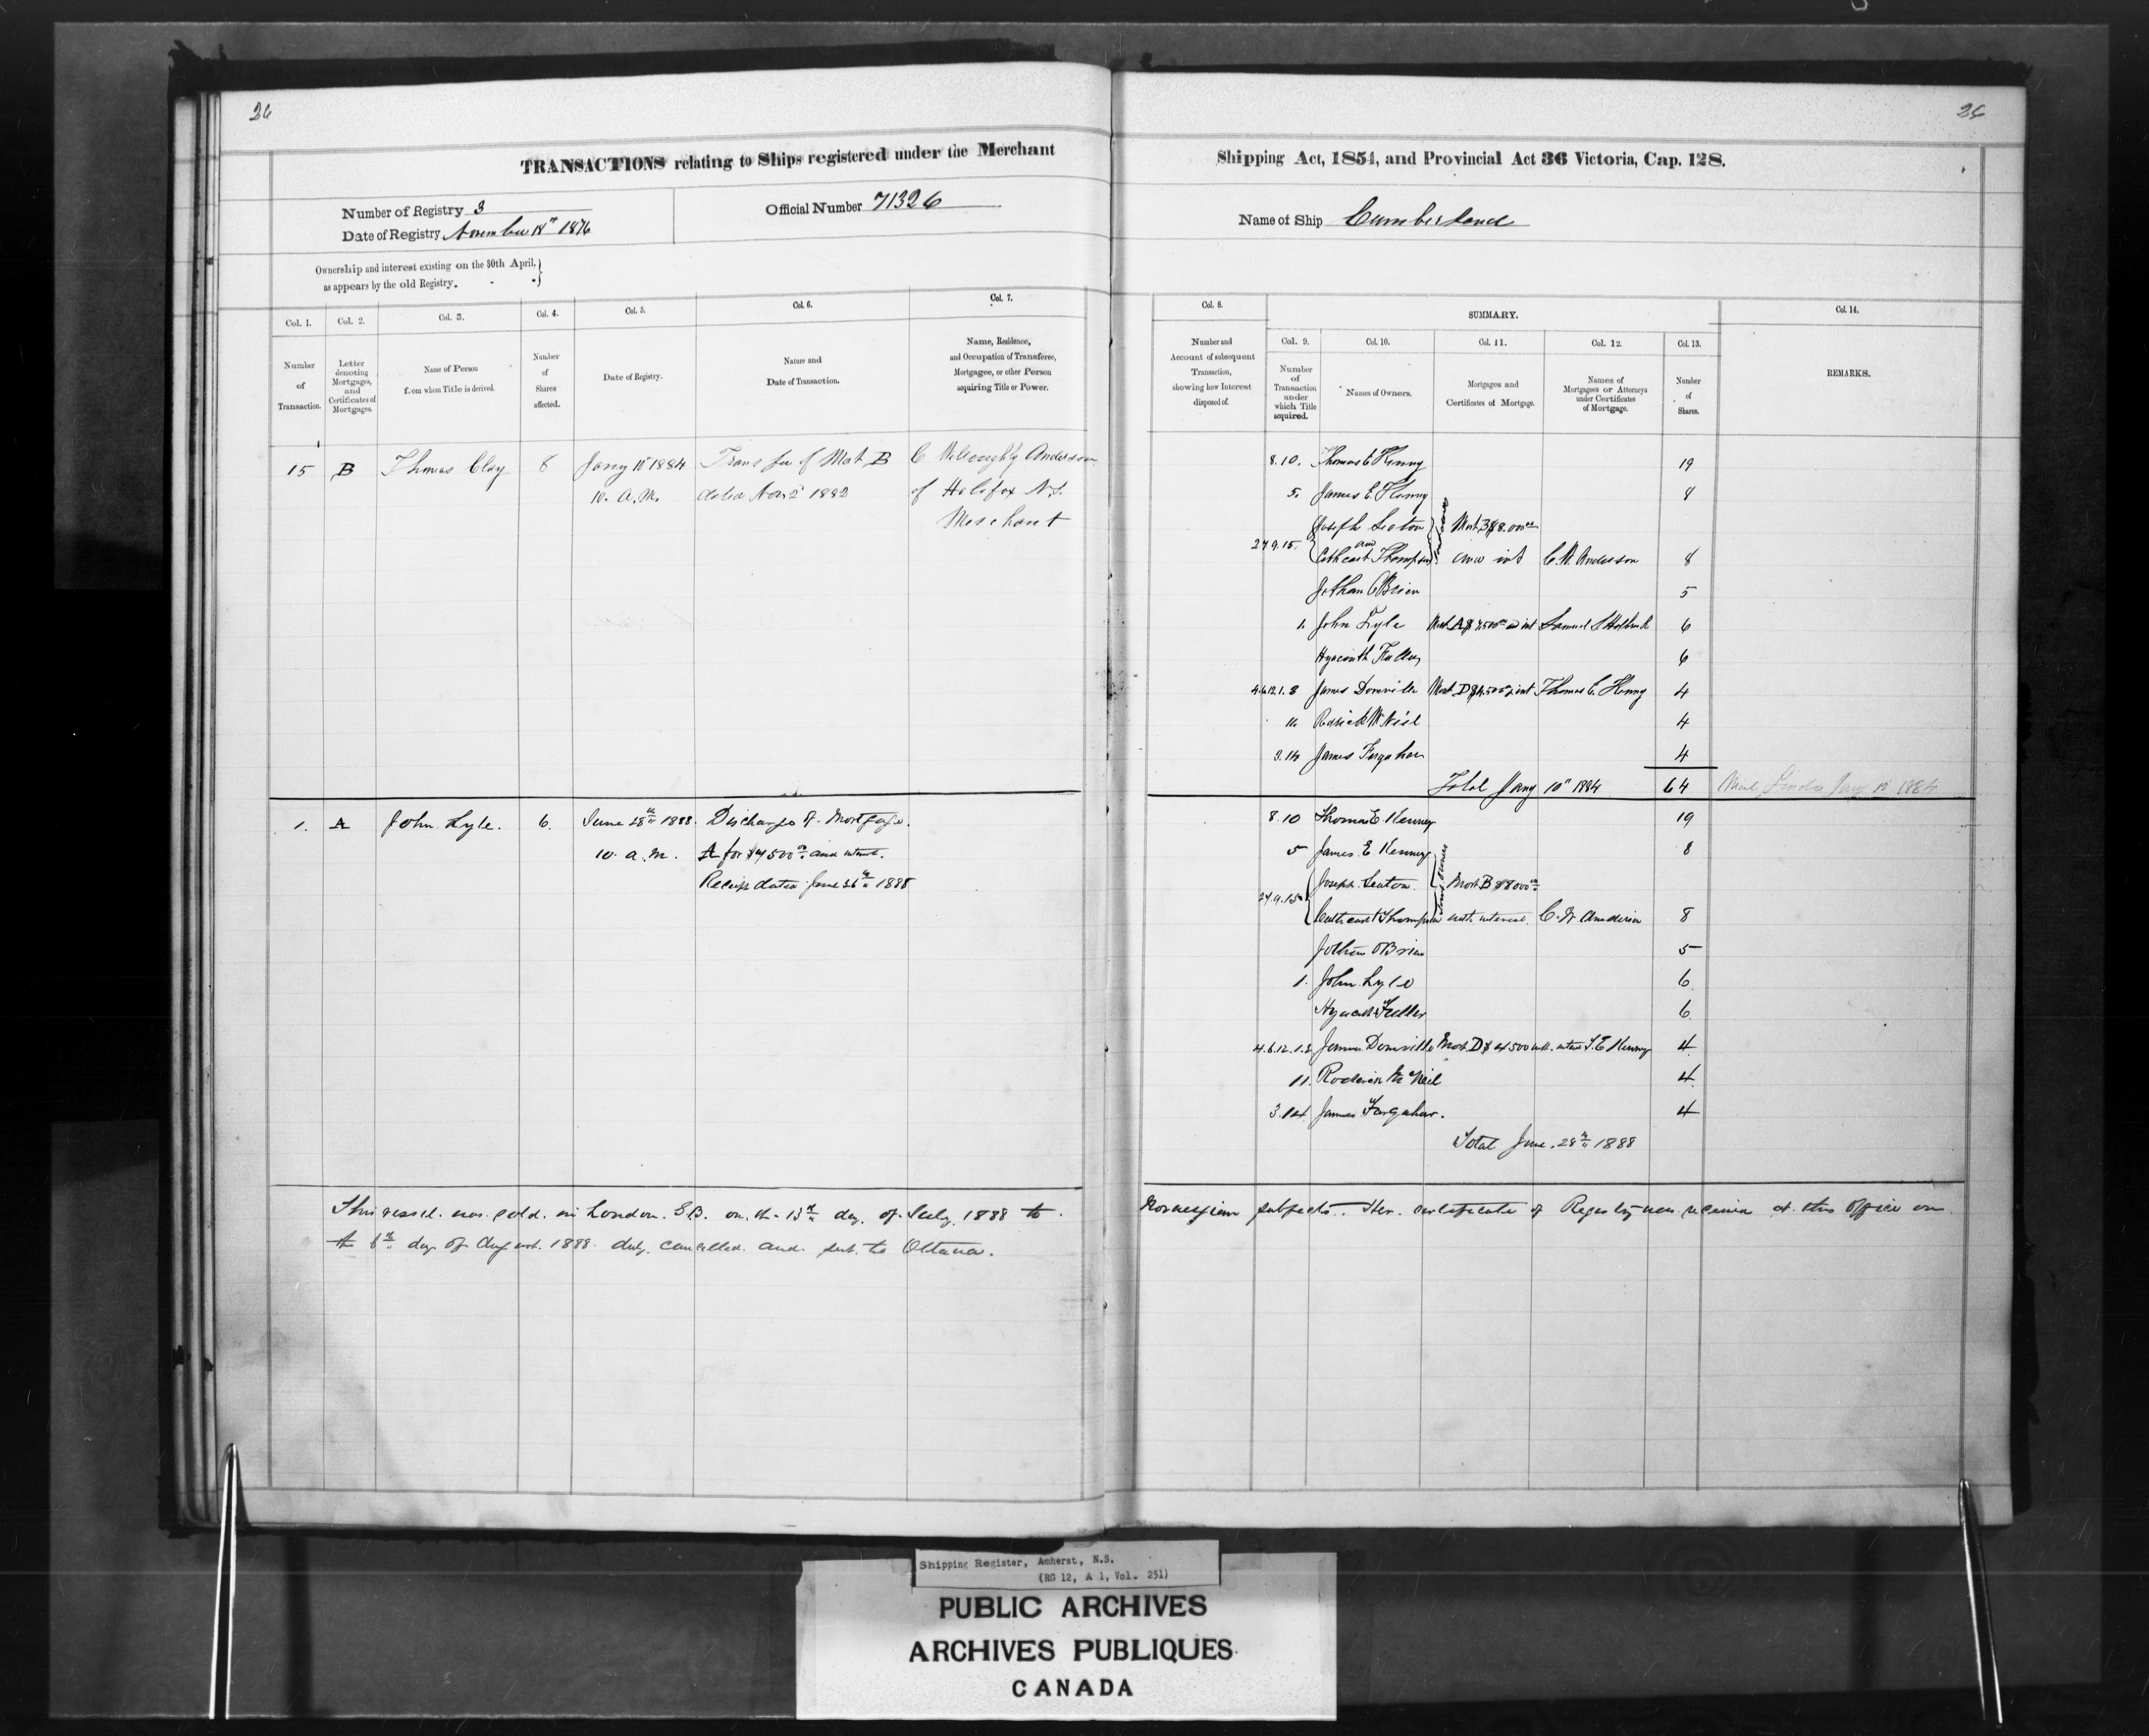 26
26
TRANSACTIONS relating to Ships registered under the Merchant
Shipping Act, 1854, and Provincial Act 36 Victoria, Cap. 128.
Number of Registry 3
Date of Registry November 18th 1876
Official Number 71326
Name of Ship Cumberland
Ownership and interest existing on the 30th April,
as appears by the old Registry.
Col. 1.
Number
of
Transaction.
Col. 2.
Letter
denoting
Mortgages,
and
Certificates of
Mortgages.
Col. 3.
Name of Person
from whom Title is derived.
Col. 4.
Number
of
Shares
affected.
Col. 5.
Date of Registry.
Col. 6.
Nature and
Date of Transaction.
Col. 7.
Name, Residence,
and Occupation of Transferee,
Mortgagee, or other Person
acquiring Title or Power.
Col. 8.
Number and
Account of subsequent
Transaction,
showing how Interest
disposed of.
SUMMARY.
Col. 9.
Number
of
Transaction
under
which Title
acquired.
Col. 10.
Names of Owners.
Col. 11.
Mortgages and
Certificates of Mortgage.
Col. 12.
Names of
Mortgagees or Attorneys
under Certificates
of Mortgage.
Col. 13.
Number
of
Shares.
Col. 14.
REMARKS.
15 B Thomas Clay 8 Jany 10" 1884 Transfer of Mort B C Willoughby Anderson
10. A.M. dated Nov 2d 1882 of Halifax N.S.
Merchant
8.10. Thomas E Kenny 19
5. James E. Kenny 8
Joseph Seaton Mort B $8.000
and
2.7.9.15. Cathcart Thompson and int C. W. Anderson 8
Jotham O'Brien 5
1. John Lyle Mort A $4500 & int Samuel 6
Hyacinth Fuller 6
4.6.12.1.3 James Domville Mort D $4.500 & int Thomas E. Kenny 4
11. Rodrick McNeil 4
3.14 James Farquhar 4
Total Jany 10" 1884 64
1. A John Lyle. 6. June 28th 1888. Discharge of Mortgage.
10 a.m. A for $4500 and interest.
Receipt dated June 26th 1888
8.10 Thomas E. Kenney 19
5 James E Kenney 8
Joseph Seaton. Mort B $8000
2.7.9.15 Cathcart Thompson with interest. C. W. Anderson 8
Jotham O'Brien 5
1. John Lyle 6
Hyacinth Fuller 6
4.6.12.1.3. James Domville Mort. D $4500 with interest T. E Kenney 4
11. Roderick McNeil 4
3.14 James Farquhar. 4
Total June 28th 1888
This vessel was sold in London. G.B. on the 13th day of July 1888 to Norwegian subjects. Her certificate of Registry was received at this office on
the 6th day of August. 1888. duly cancelled and sent to Ottawa.
Shipping Register, Amherst, N.S.
(RG 12, A 1, Vol. 251)
PUBLIC ARCHIVES
ARCHIVES PUBLIQUES
CANADA